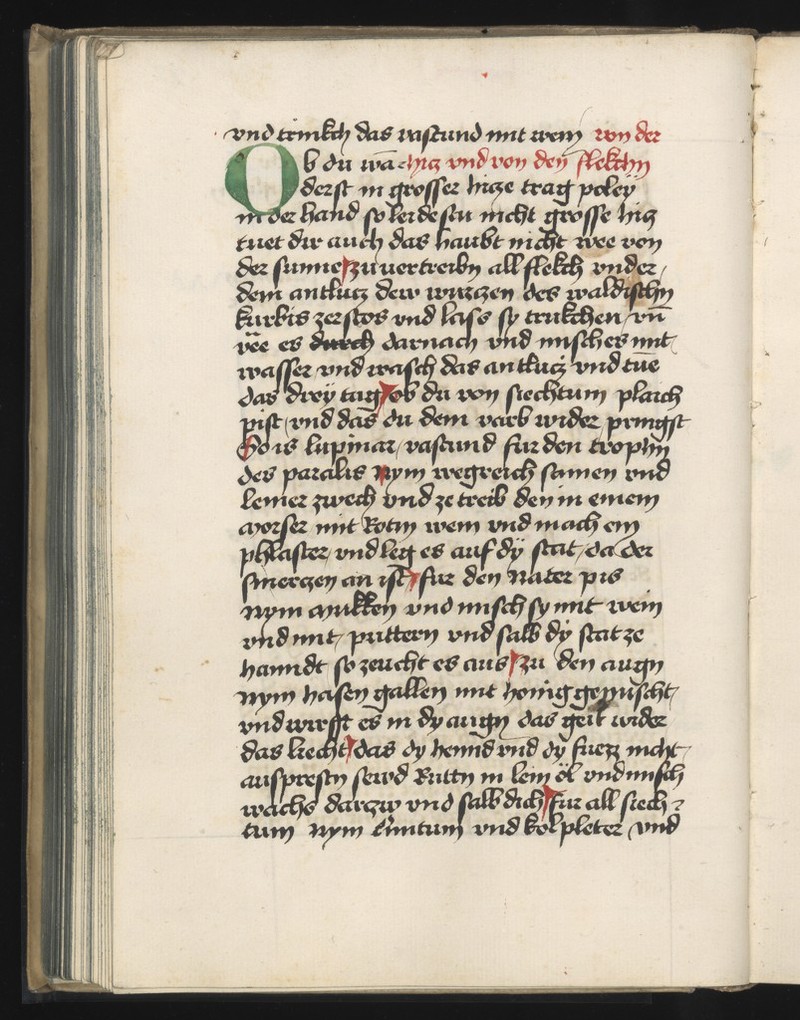 vnd trinkch das vastund mit wein von der
Ob du wā- hicz vnd von den flekchn
derst in grosser hicze trag poley
in der hand so leidestu nicht grosse hicz
tuet dir auch das haubt nicht wee von
der sunne zu uertreibn all flekch vnder
dem antlucz dew wurczen des waldischn
kurbis zerstos vnd lass sy trukchen vn̄
ree es durch darnach vnd misch es mit
wasser vnd wasch das antlucz vnd tue
das drey tag ob du von siechtum plaich
pist vnd das du dein varb wider pringst
So is lupinar vastund fur den tropfin
des paralis Nym wegreich samen vnd
lemer zwech vnd ze treib den in einem
morser mit Rotm wein vnd mach ein
phlaster vnd leg es auf dy stat da der
smerczen an ist fur den Nater pis
Nym mukken vnd misch sy mit wein
vnd mit puttern vnd salb dy stat ze
hanndt so zeucht es aus zu den augn
Nym hasen gallen mit honig gemischt
vnd wirfst es in dy augn das geit wider
das liecht das dy hennd vnd dy fuezz nicht
ausprestn sewd Ruttn in lein öl vnd misch
wachs darzw vnd salb dich fur all siech
tum Nym vnd kolpleter vnd